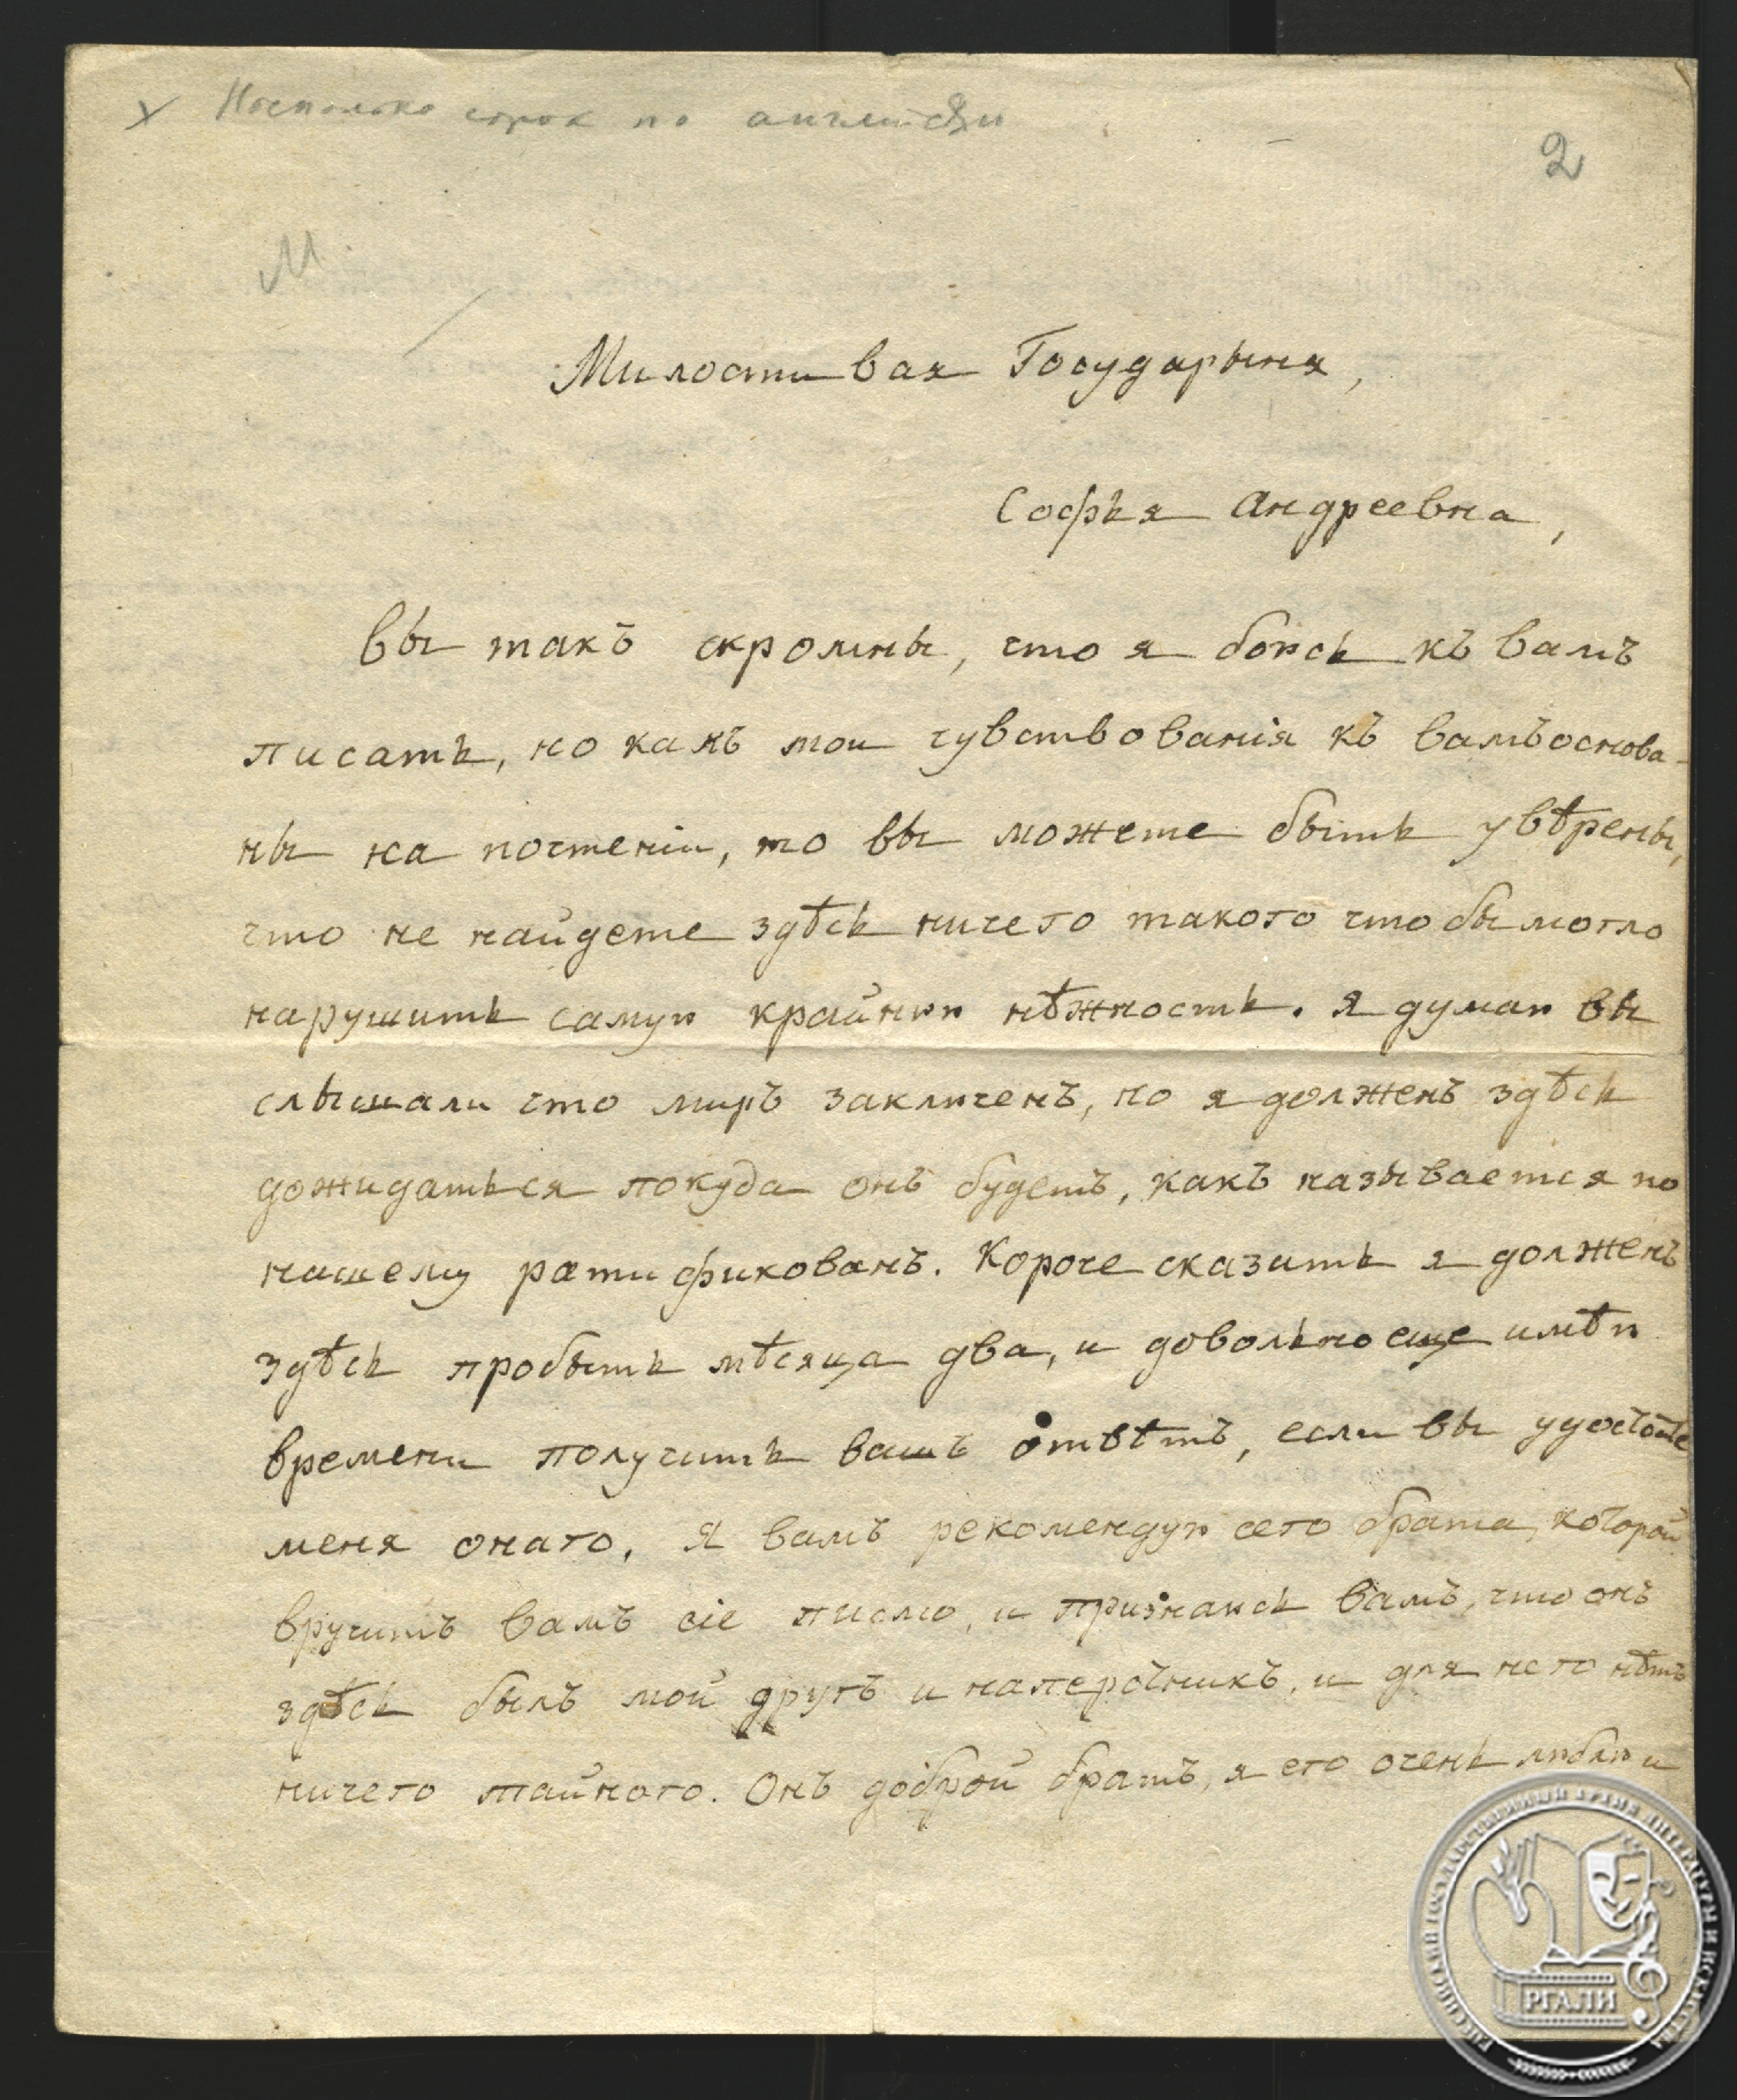 х Несколько строк по английски
2
М.
Милостивая Государыня,
Софья Андреевна,
Вы такъ скромны, что я боюсь къ вамъ
писать, но какъ мои чувствованія къ вамъ основа-
ны на почтеніи, то вы можете быть увѣрены,
что не найдете здѣсь ничего такого что бы могло
нарушить самую крайнюю нѣжность. Я думаю вы
слышали что миръ заключенъ, но я долженъ здѣсь
дожидаться покуда онъ будетъ, какъ называется по
нашему ратификованъ. Короче сказать я долженъ
здѣсь пробыть мѣсяца два, и довольно еще имѣю
времени получить вашъ отвѣтъ, если вы удостоите
меня онаго. Я вамъ рекомендую сего брата, которой
вручитъ вамъ сіе писмо, и признаюсь вамъ, что онъ
здѣсь былъ мой другъ и наперсникъ, и для него нѣтъ
ничего тайного. Онъ доброй братъ, я его очень люблю и
РОССИЙСКИЙ ГОСУДАРСТВЕННЫЙ АРХИВ ЛИТЕРАТУРЫ И ИСКУССТВА
РГАЛИ